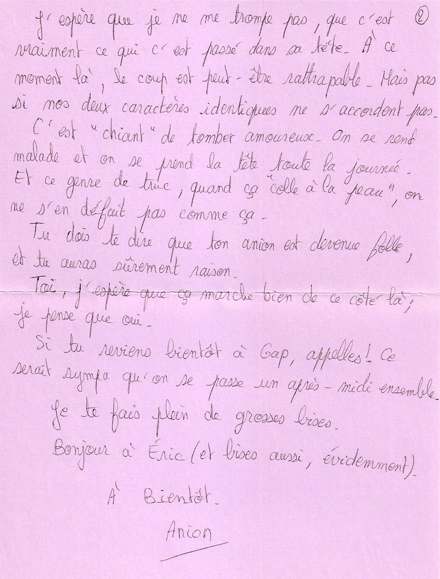 2
J'espère que je ne me trompe pas, que c'est
vraiment ce qui c'est passé dans sa tête. À ce
moment là, le coup est peut-être rattrapable. Mais pas
si nos deux caractères identiques ne s'accordent pas.
C'est "chiant" de tomber amoureux. On se rend
malade et on se prend la tête toute la journée.
Et ce genre de truc, quand ça "colle à la peau", on
ne s'en défait pas comme ça.
Tu dois te dire que ton anion est devenue folle,
et tu auras sûrement raison.
Toi, j'espère que ça marche bien de ce côté là;
je pense que oui.
Si tu reviens bientôt à Gap, appelles! Ce
serait sympa qu'on se passe un après-midi ensemble.
Je te fais plein de grosses bises.
Bonjour à Éric (et bises aussi, évidemment).
À Bientôt.
Anion